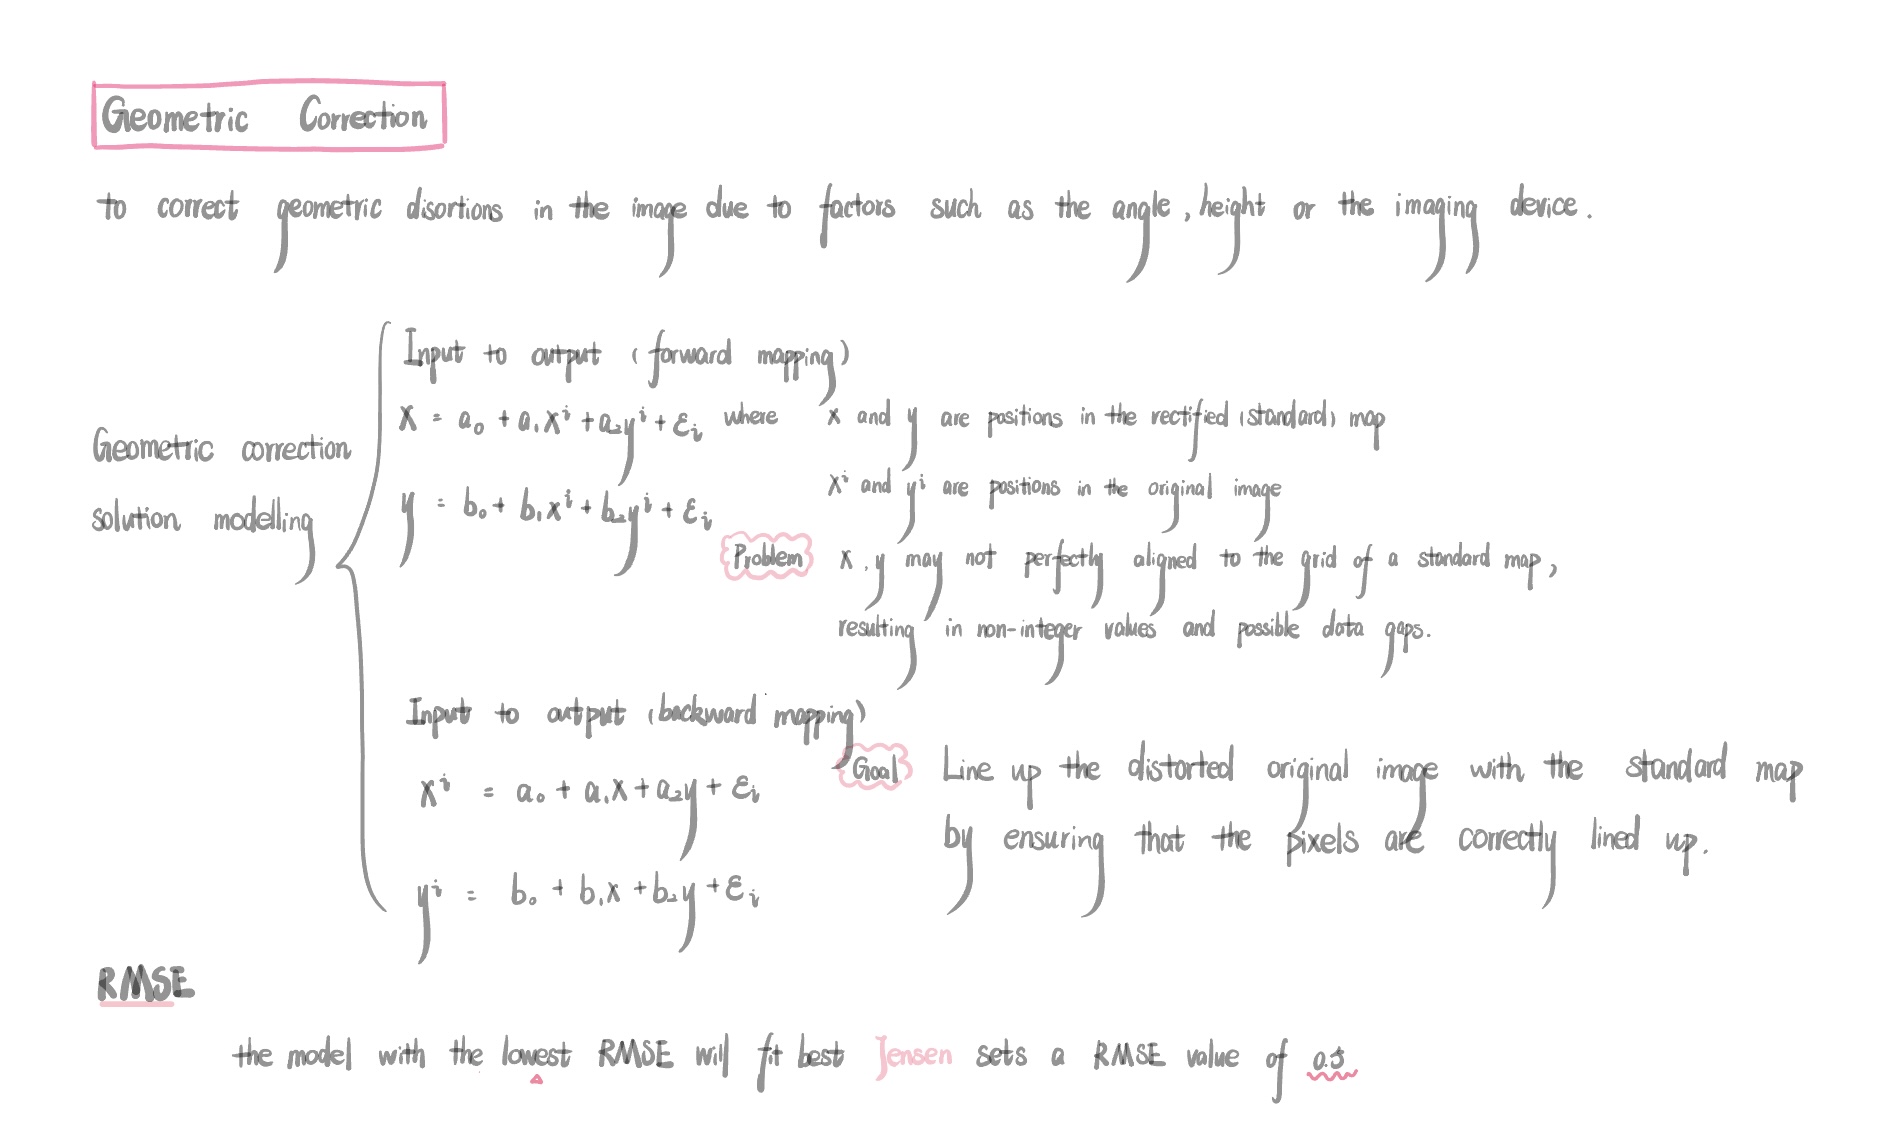 Geometric Correction
to correct geometric disortions in the image due to factors such as the angle, height or the imaging device.
Geometric correction
solution modelling
Input to output (forward mapping)
x = a₀ + a₁xⁱ + a₂yⁱ + εᵢ where x and y are positions in the rectified (standard) map
xⁱ and yⁱ are positions in the original image
y = b₀ + b₁xⁱ + b₂yⁱ + εᵢ
Problem x, y may not perfectly aligned to the grid of a standard map,
resulting in non-integer values and possible data gaps.
Input to output (backward mapping)
Goal Line up the distorted original image with the standard map
by ensuring that the pixels are correctly lined up.
xⁱ = a₀ + a₁x + a₂y + εᵢ
yⁱ = b₀ + b₁x + b₂y + εᵢ
RMSE
the model with the lowest RMSE will fit best Jensen sets a RMSE value of 0.5